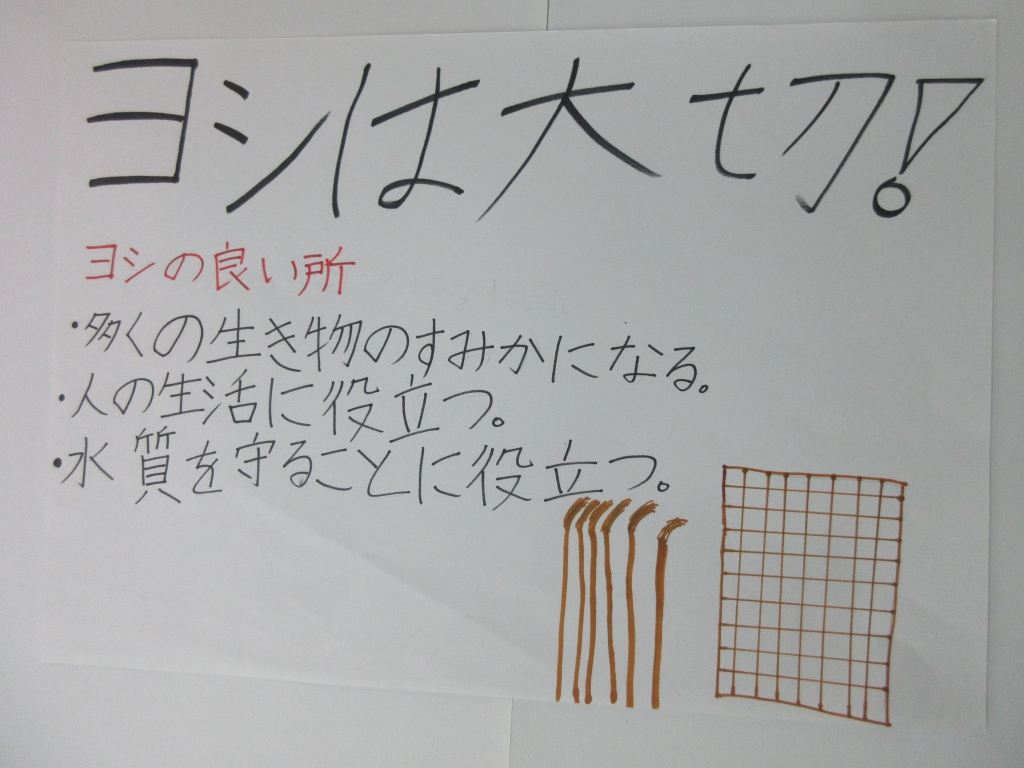 ヨシは大切!
ヨシの良い所
・多くの生き物のすみかになる。
・人の生活に役立つ。
・水質を守ることに役立つ。